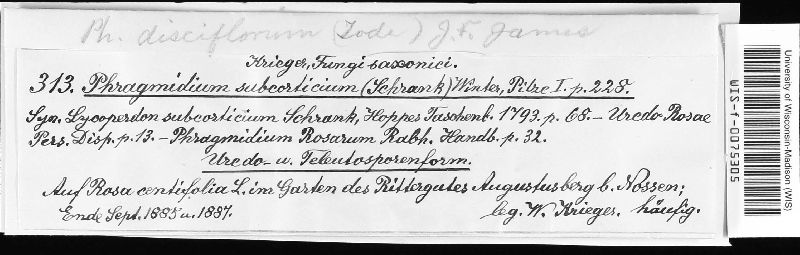 Ph. disciflorum (Tode) J. F. James
Krieger, Fungi saxonici.
313. Phragmidium subcorticium (Schrank) Winter, Pilze I. p. 228.
Syn. Lycoperdon subcorticium Schrank, Hoppes Taschenb. 1793. p. 68. – Uredo Rosae
Pers. Disp. p. 13. – Phragmidium Rosarum Rabh. Handb. p. 32.
Uredo- u. Teleutosporenform.
Auf Rosa centifolia L. im Garten des Rittergutes Augustusberg b. Nossen;
Ende Sept. 1885 u. 1887. leg. W. Krieger. häufig.
University of Wisconsin-Madison (WIS)
WIS-f-0075305